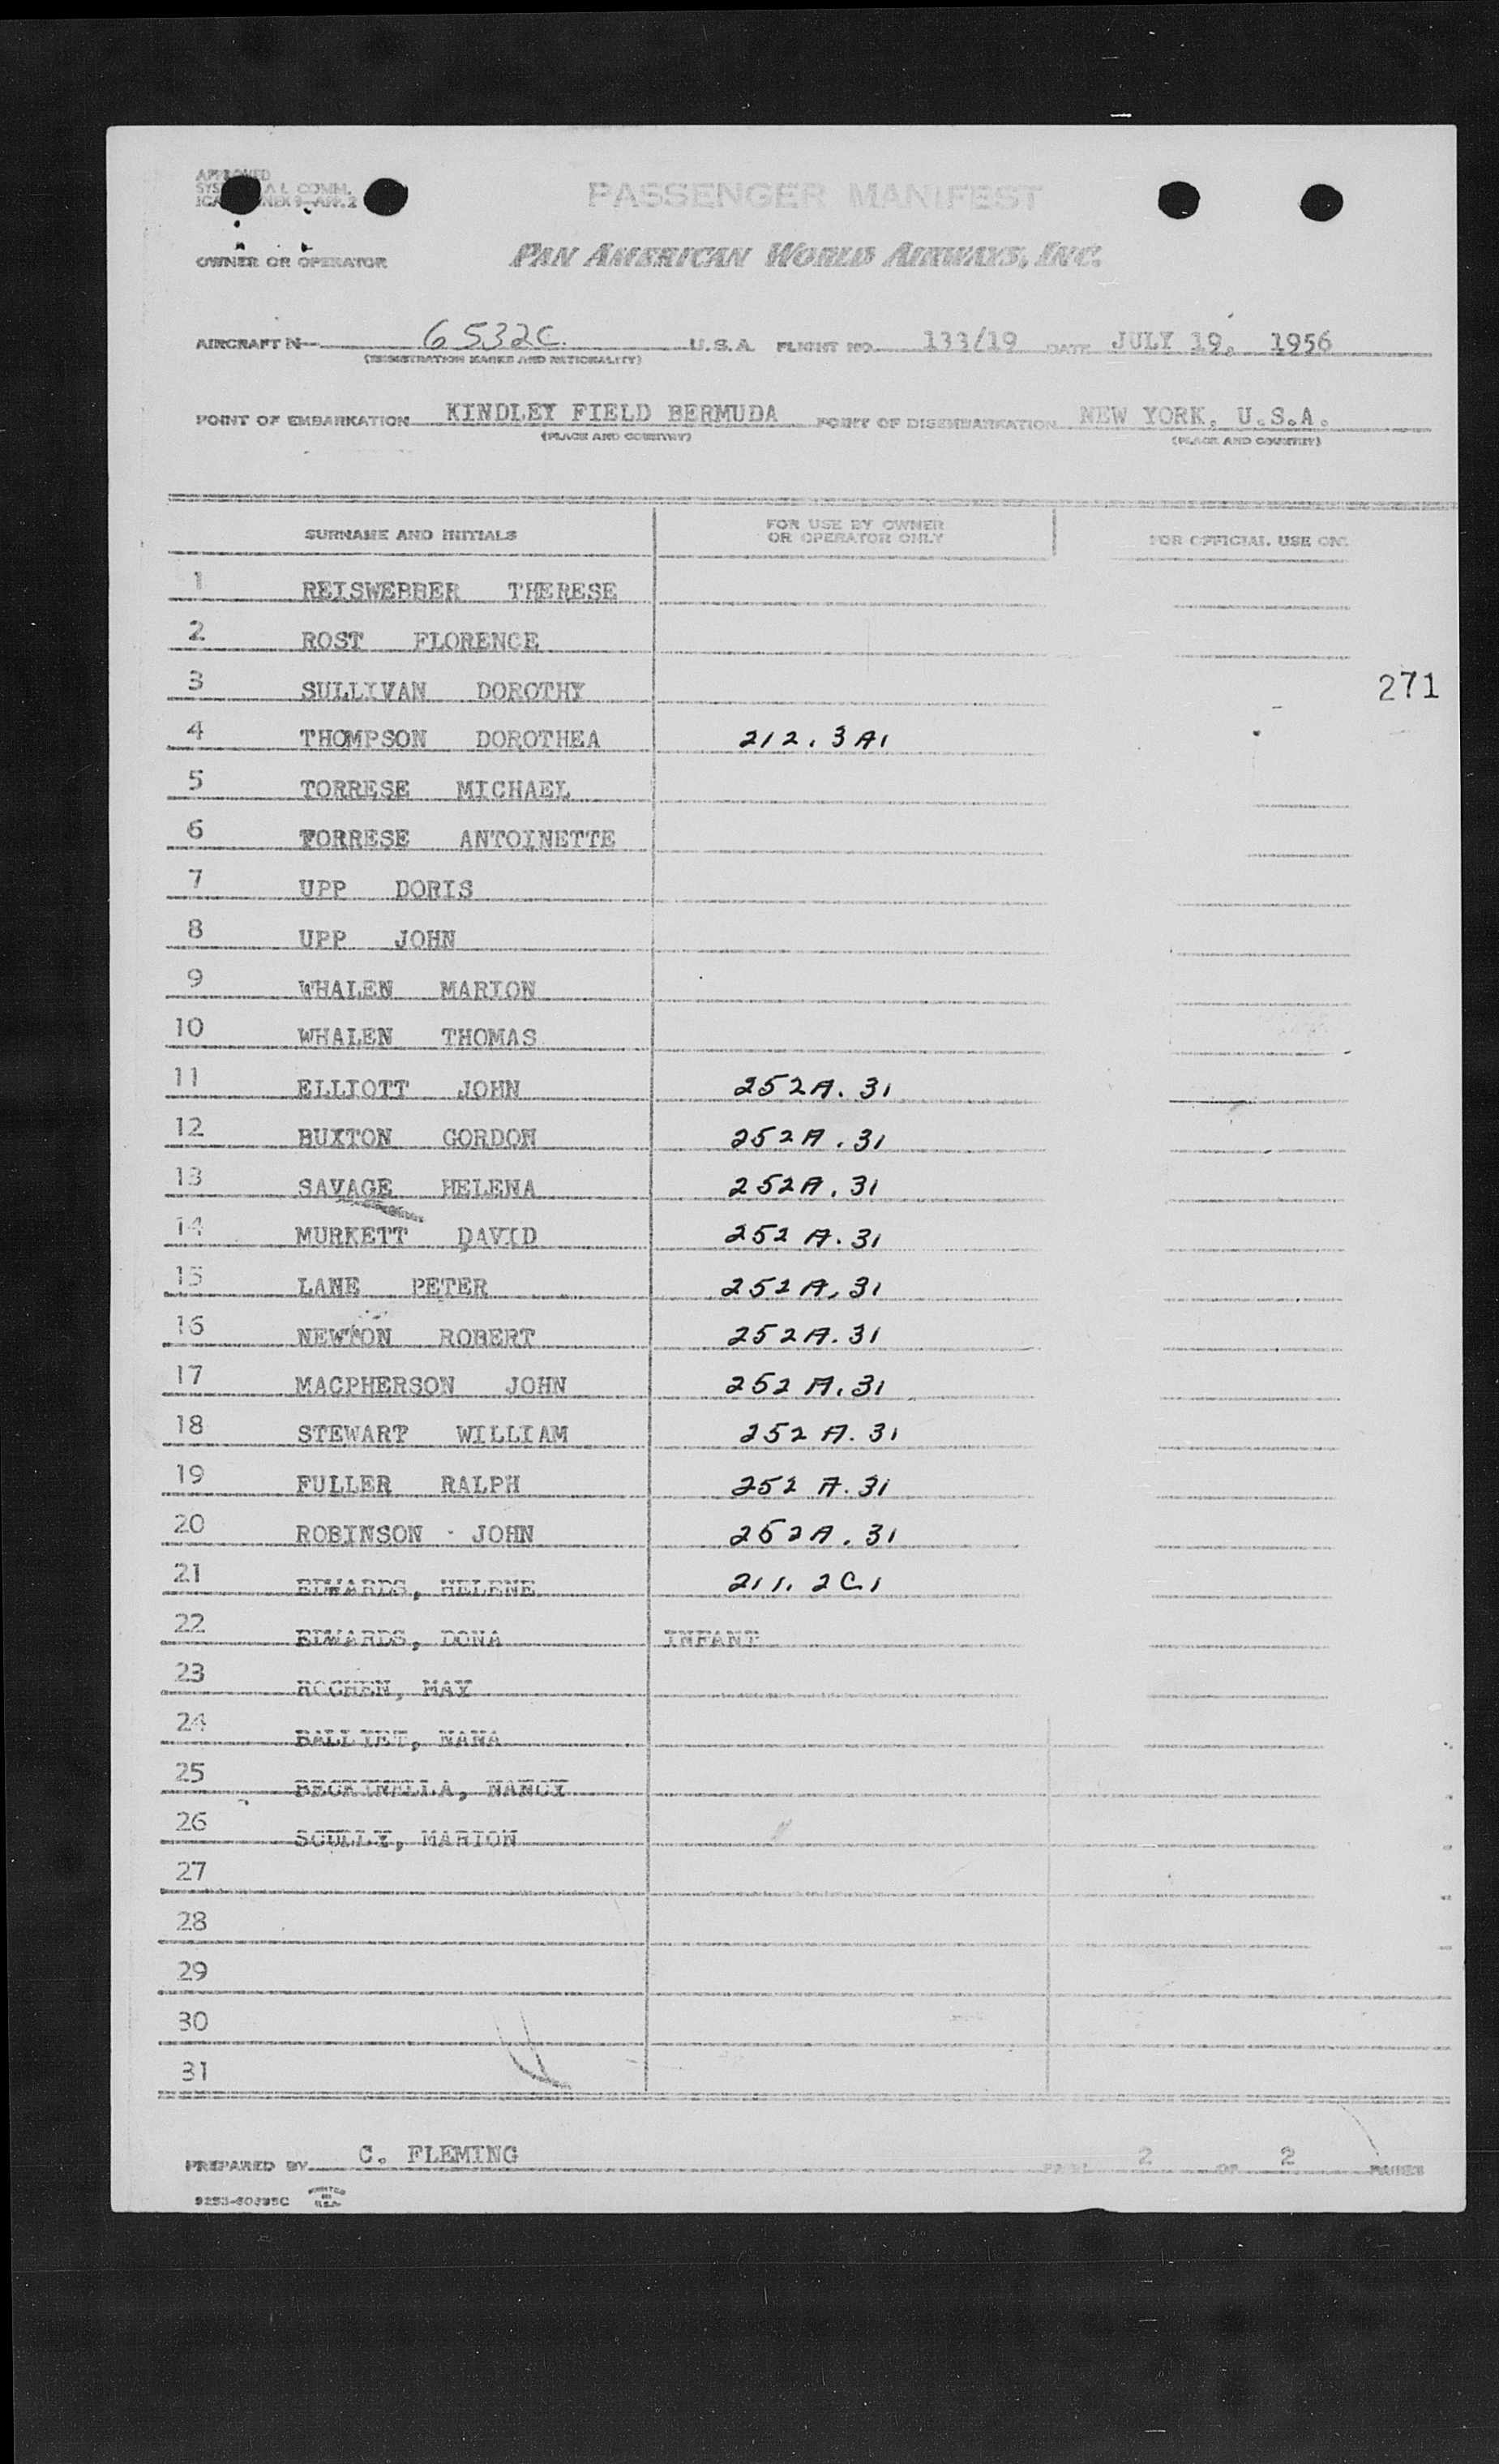 PASSENGER MANIFEST
OWNER OR OPERATOR PAN AMERICAN WORLD AIRWAYS, INC.
AIRCRAFT N- 6532C U.S.A. FLIGHT NO. 133/19 DATE JULY 19, 1956
(REGISTRATION MARKS AND NATIONALITY)
POINT OF EMBARKATION KINDLEY FIELD BERMUDA POINT OF DISEMBARKATION NEW YORK, U.S.A.
(PLACE AND COUNTRY) (PLACE AND COUNTRY)
SURNAME AND INITIALS FOR USE BY OWNER OR OPERATOR ONLY FOR OFFICIAL USE ON
1 REISWEBBER THERESE
2 ROST FLORENCE
3 SULLIVAN DOROTHY 271
4 THOMPSON DOROTHEA 212.3A1
5 TORRESE MICHAEL
6 TORRESE ANTOINETTE
7 UPP DORIS
8 UPP JOHN
9 WHALEN MARION
10 WHALEN THOMAS
11 ELLIOTT JOHN 252A.31
12 BUXTON GORDON 252A.31
13 SAVAGE HELENA 252A.31
14 MURKETT DAVID 252A.31
15 LANE PETER 252A.31
16 NEWTON ROBERT 252A.31
17 MACPHERSON JOHN 252A.31
18 STEWART WILLIAM 252A.31
19 FULLER RALPH 252A.31
20 ROBINSON JOHN 252A.31
21 EDWARDS, HELENE 211.2C1
22 EDWARDS, DONA INFANT
23 MAX
24 BALLIET, NANA
25 NANCY
26 SCULLY, MARION
27
28
29
30
31
PREPARED BY C. FLEMING PAGE 2 OF 2 PAGES
PRINTED IN U.S.A.